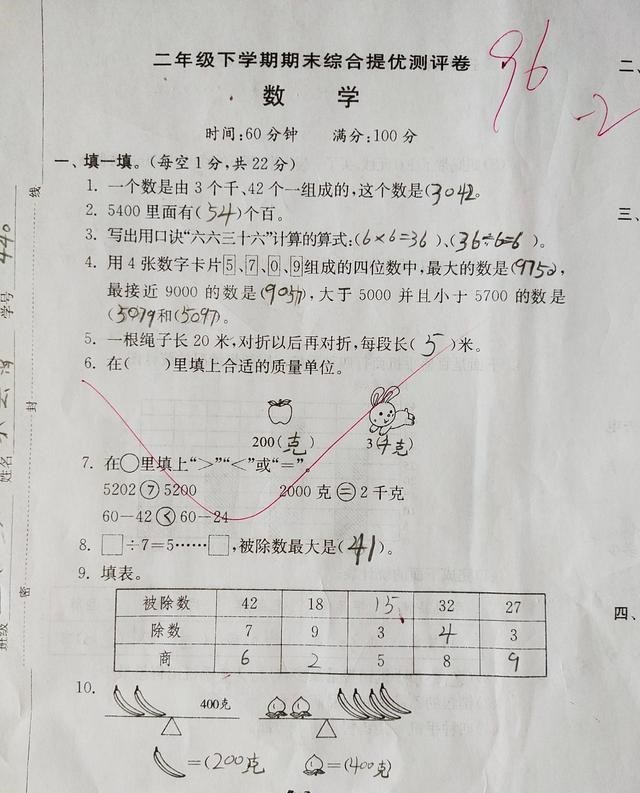 二年级下学期期末综合提优测评卷
96
-2
数 学
时间:60分钟 满分:100分
一、填一填。(每空1分,共22分)
1. 一个数是由3个千、42个一组成的,这个数是(3042)。
2. 5400里面有(54)个百。
3. 写出用口诀“六六三十六”计算的算式:(6×6=36)、(36÷6=6)。
4. 用4张数字卡片5、7、0、9组成的四位数中,最大的数是(9750),
最接近9000的数是(9057),大于5000并且小于5700的数是
(5079和(5097)。
5. 一根绳子长20米,对折以后再对折,每段长(5)米。
6. 在( )里填上合适的质量单位。
200(克) 3(千克)
7. 在○里填上“>”“<”或“=”。
5202>5200 2000克=2千克
60-42<60-24
8. □÷7=5……□,被除数最大是(41)。
9. 填表。
被除数 42 18 15 32 27
除数 7 9 3 4 3
商 6 2 5 8 9
10.
400克
=(200克 =(400克)
线
学号 440
封
姓名
密
班级
二、
三、
四、